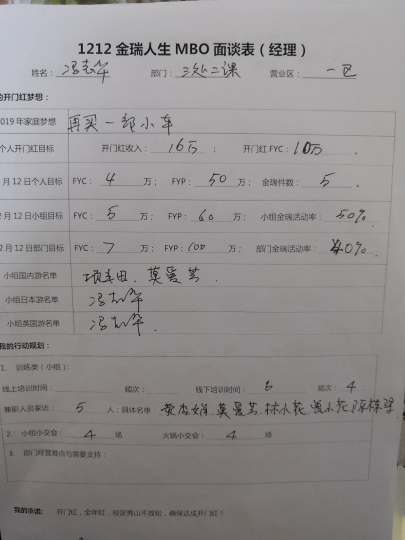 1212 金瑞人生 MBO 面谈表（经理）
姓名： 冯志华 部门： 三处二课 营业区： 一区
的开门红梦想：
2019 年家庭梦想 再买一部小车
个人开门红目标 开门红收入： 16万 ； 开门红 FYC： 10万 .
月 12 日个人目标 FYC： 4 万； FYP： 50 万； 金瑞件数： 5 .
月 12 日小组目标 FYC： 5 万； FYP： 60 万； 小组金瑞活动率： 50%
2 月 12 日部门目标 FYC： 7 万； FYP： 100 万； 部门金瑞活动率： 40% .
小组国内游名单 莫爱芳 .
小组日本游名单 冯志华
小组英国游名单 冯志华 .
我的行动规划：
1. 训练类（小组）：
线上培训时间： 频次： 线下培训时间： 6 频次： 4
兼职人员家访： 5 人；具体名单： 莫爱芳 林小花
2. 小组小交会： 4 场 火锅小交会： 4 场
3. 部门经营难点与需要支持：
我的承诺： 开门红，全年红，咬定青山不放松，确保达成开门红！